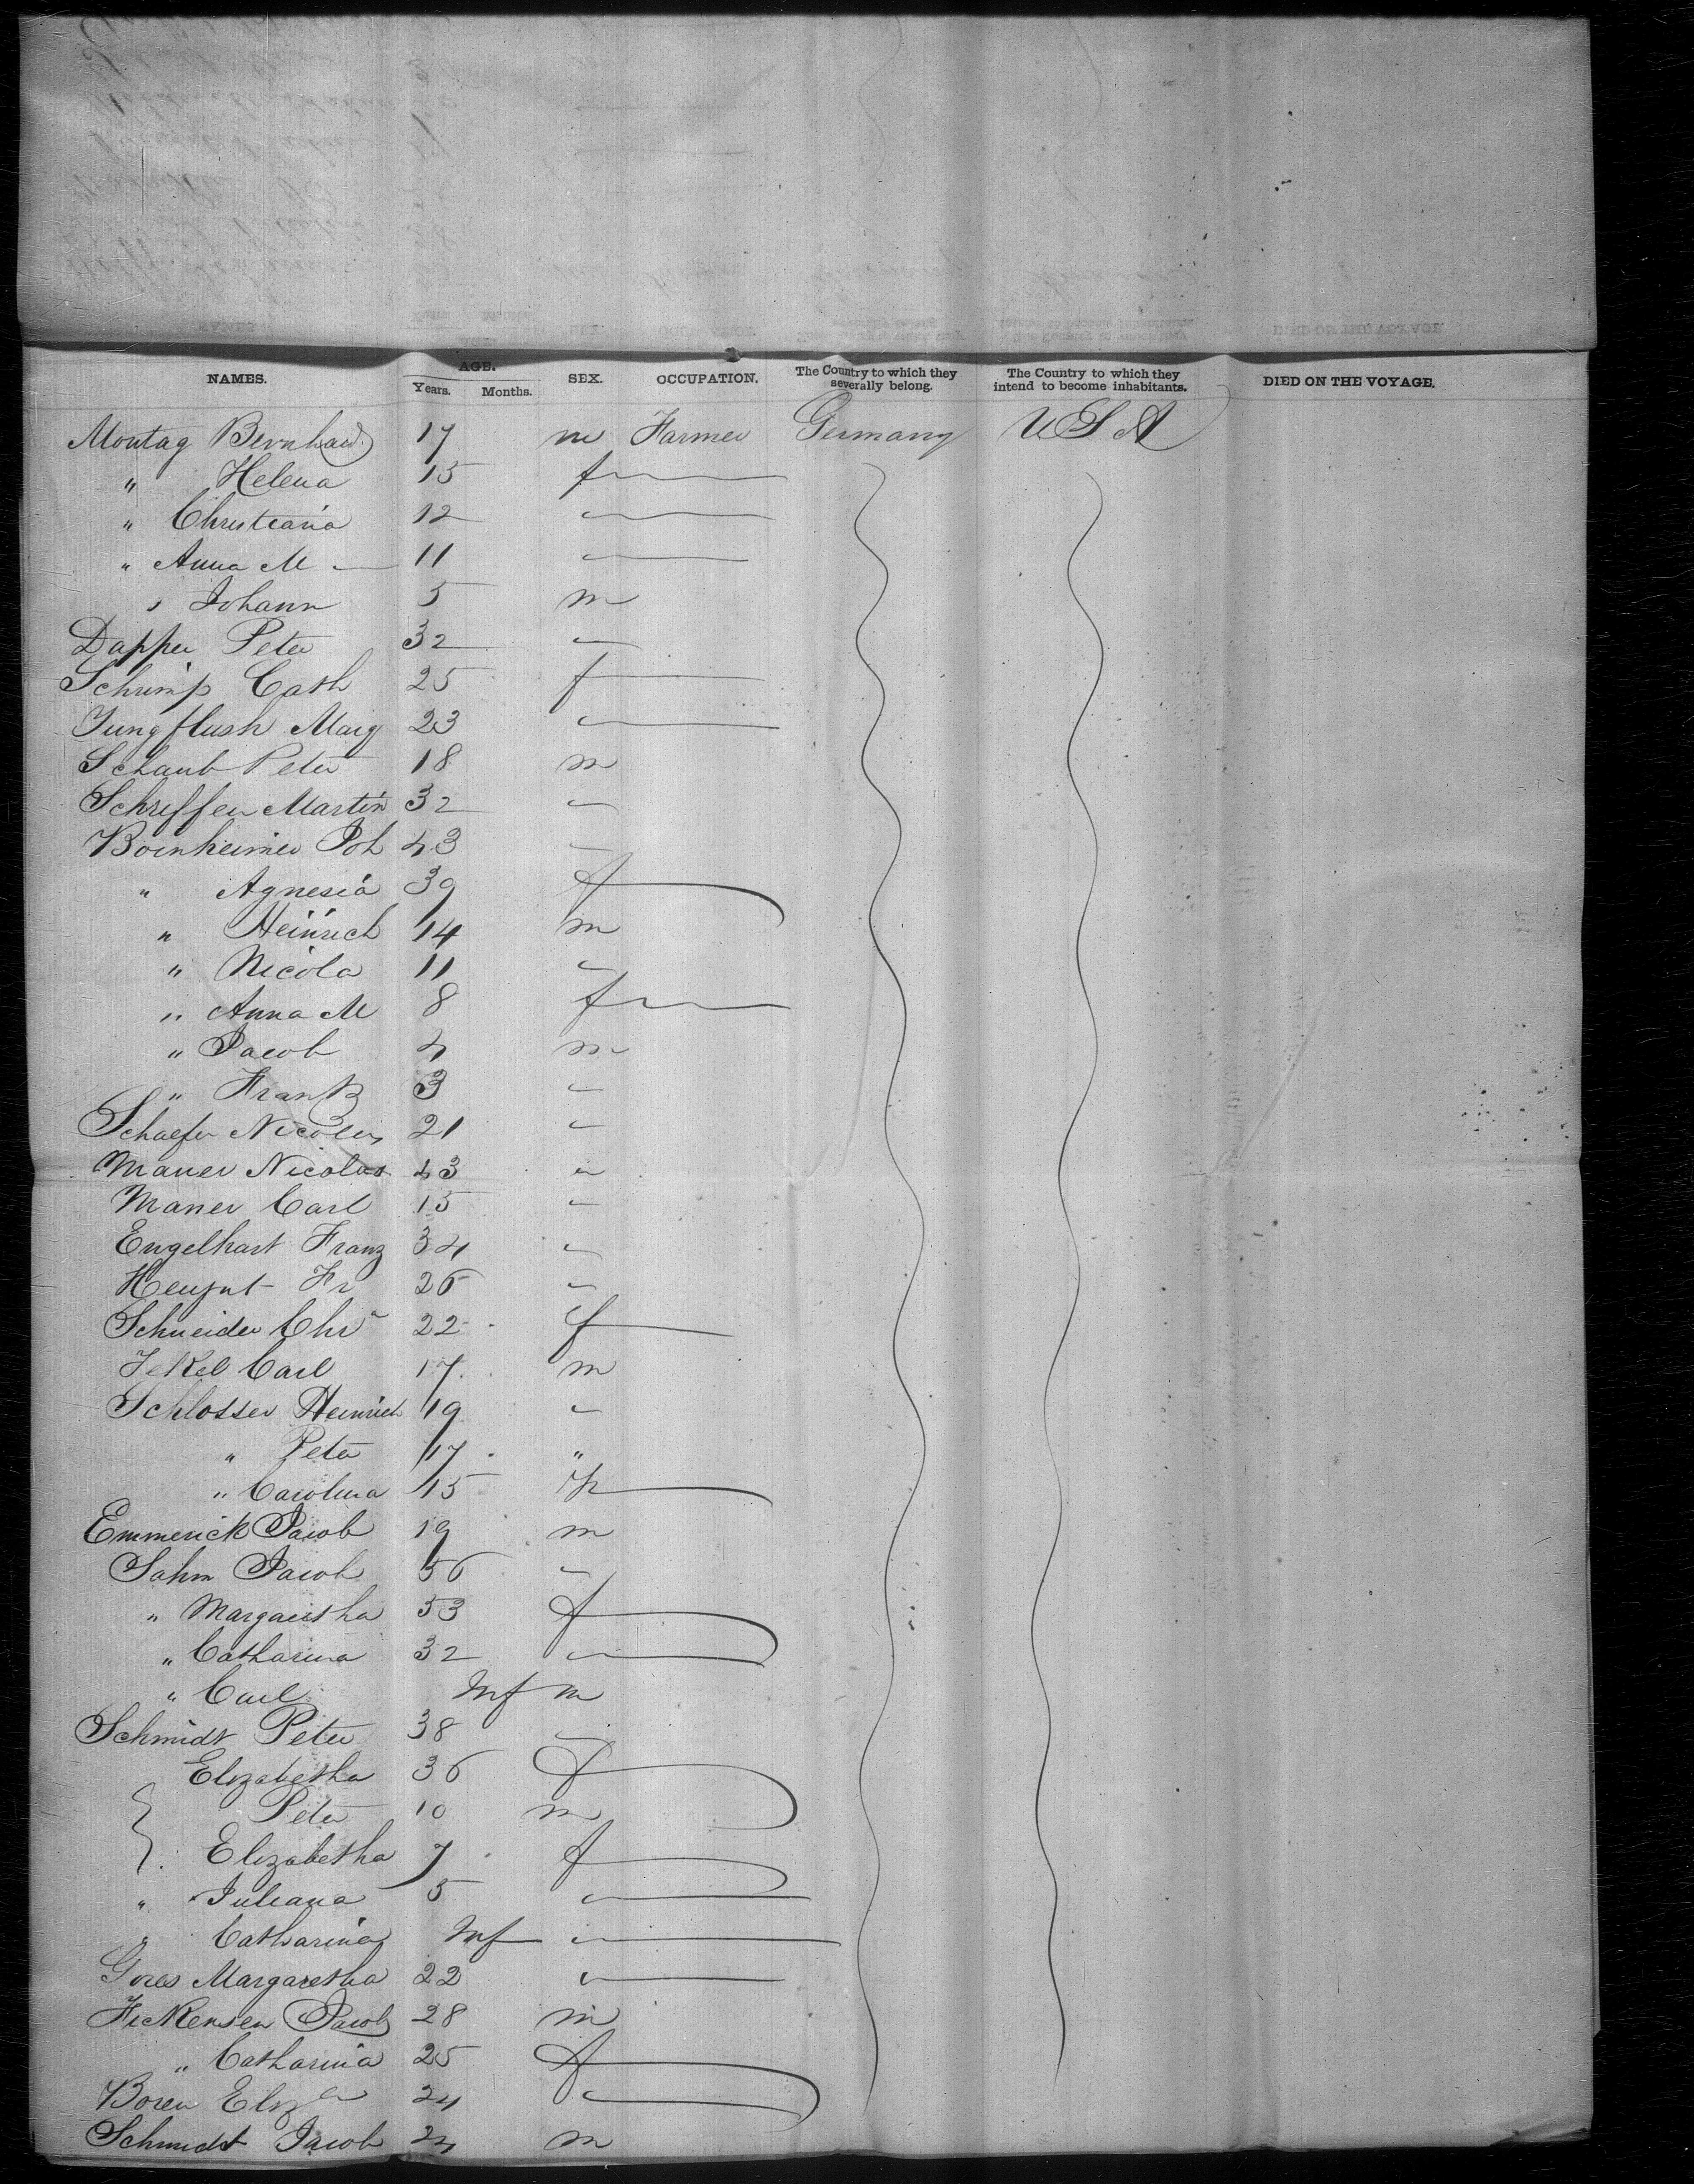 NAMES. AGE. Years. Months. SEX. OCCUPATION. The Country to which they severally belong. The Country to which they intend to become inhabitants. DIED ON THE VOYAGE.
Montag Bernhard 17 m Farmer Germany U S A
" Helena 15 f
" Christiana 12 "
" Anna M 11 "
" Johann 5 m
Dapper Peter 32 "
Schrimp Cath 25 f
Jungflush Marg 23 "
Schaub Peter 18 m
Schreffer Martin 32 "
Bornheimer Joh 43 "
" Agnesia 39 f
" Heinrich 14 m
" Nicola 11 "
" Anna M 8 f
" Jacob 4 m
" Frank 3 "
Schaefer Nicolas 21 "
Maner Nicolas 43 "
Maner Carl 15 "
Engelhart Franz 34 "
Fr 26 "
Schneider Chr 22 f
Jekel Carl 17 m
Schlosser Heinrich 19 "
" Peter 17 "
" Carolina 15 f
Emmerick Jacob 19 m
Sahm Jacob 56 "
" Margaretha 53 f
" Catharina 32 "
" Carl Inf m
Schmidt Peter 38 "
Elizabetha 36 f
Peter 10 m
Elizabetha 7 f
" Juliana 5 "
" Catharina Inf "
Gores Margaretha 22 "
Fickensen Jacob 28 m
" Catharina 25 f
Boren Eliza 24 "
Schmidt Jacob 24 m